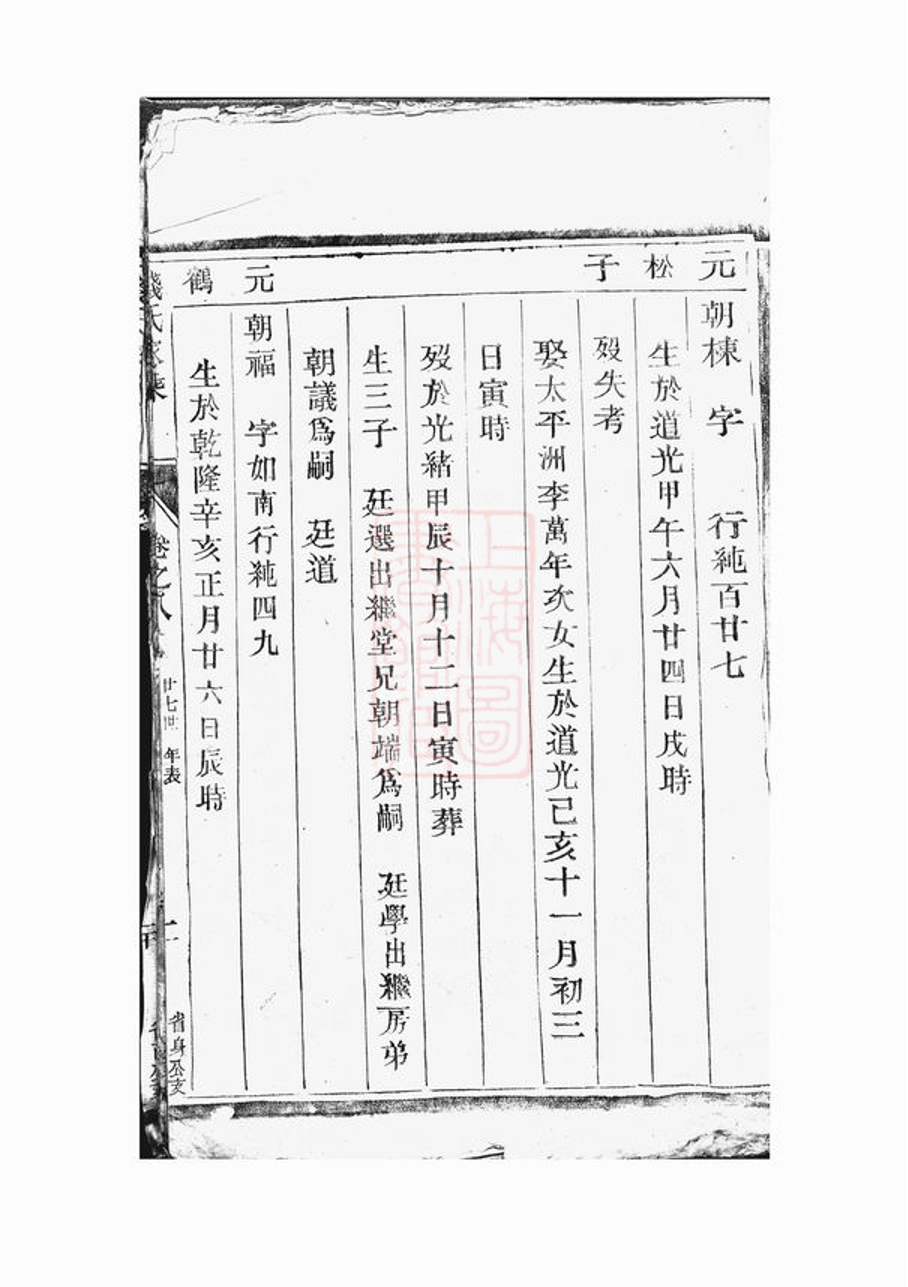 元松子
朝棟　字　　行純百廿七
生於道光甲午六月廿四日戌時
歿失考
娶太平洲李萬年次女生於道光己亥十一月初三
日寅時
歿於光緒甲辰十月十二日寅時葬
生三子　廷選出繼堂兄朝端爲嗣　廷學出繼房弟
朝議爲嗣　廷道
元鶴
朝福　字如南行純四九
生於乾隆辛亥正月廿六日辰時
錢氏家乘
卷之八
廿七世　年表
省身公支
上海圖書館藏